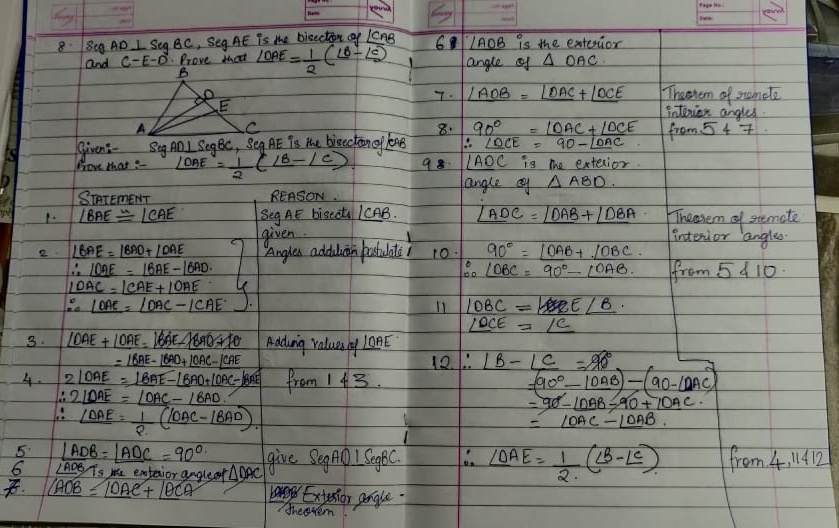 8. Seg AD ⊥ Seg BC, Seg AE is the bisector of ∠CAB
and C-E-D. Prove that ∠DAE = 1/2 (∠B - ∠C)
B
D
E
A
C
Given:- Seg AD ⊥ Seg BC, Seg AE is the bisector of ∠CAB
Prove that :- ∠DAE = 1/2 (∠B - ∠C)
STATEMENT REASON.
1. ∠BAE ≅ ∠CAE Seg AE bisects ∠CAB.
given.
2. ∠BAE = ∠BAD + ∠DAE Angles addition postulate
∴ ∠DAE = ∠BAE - ∠BAD.
∠DAC = ∠CAE + ∠DAE
∴ ∠DAE = ∠DAC - ∠CAE
3. ∠DAE + ∠DAE = ∠BAE - ∠BAD + ∠D Adding values of ∠DAE
= ∠BAE - ∠BAD + ∠DAC - ∠CAE
4. 2∠DAE = ∠BAE - ∠BAD + ∠DAC - ∠BAE from 1 & 3.
∴ 2∠DAE = ∠DAC - ∠BAD.
∴ ∠DAE = 1/2. (∠DAC - ∠BAD)
5. ∠ADB = ∠ADC = 90°. give Seg AD ⊥ Seg BC.
6 ∠ADB is the exterior angle of △DAC
7. ∠ADB = ∠DAC + ∠DCA Exterior angle -
theorem.
6 ∠ADB is the exterior
angle of △ DAC.
7. ∠ADB = ∠DAC + ∠DCE Theorem of remote
interior angles.
8. 90° = ∠DAC + ∠DCE from 5 & 7.
∴ ∠DCE = 90 - ∠DAC
9 ∠ADC is the exterior.
angle of △ ABD.
∠ADC = ∠DAB + ∠DBA Theorem of remote
interior angles.
10. 90° = ∠DAB + ∠DBC.
∴ ∠DBC = 90° - ∠DAB. from 5 & 10.
11 ∠DBC = ∠B.
∠DCE = ∠C
12. ∴ ∠B - ∠C = 90°
= (90° - ∠DAB) - (90 - ∠DAC)
= 90 - ∠DAB - 90 + ∠DAC.
= ∠DAC - ∠DAB.
∴ ∠DAE = 1/2. (∠B - ∠C) from 4, 11 & 12